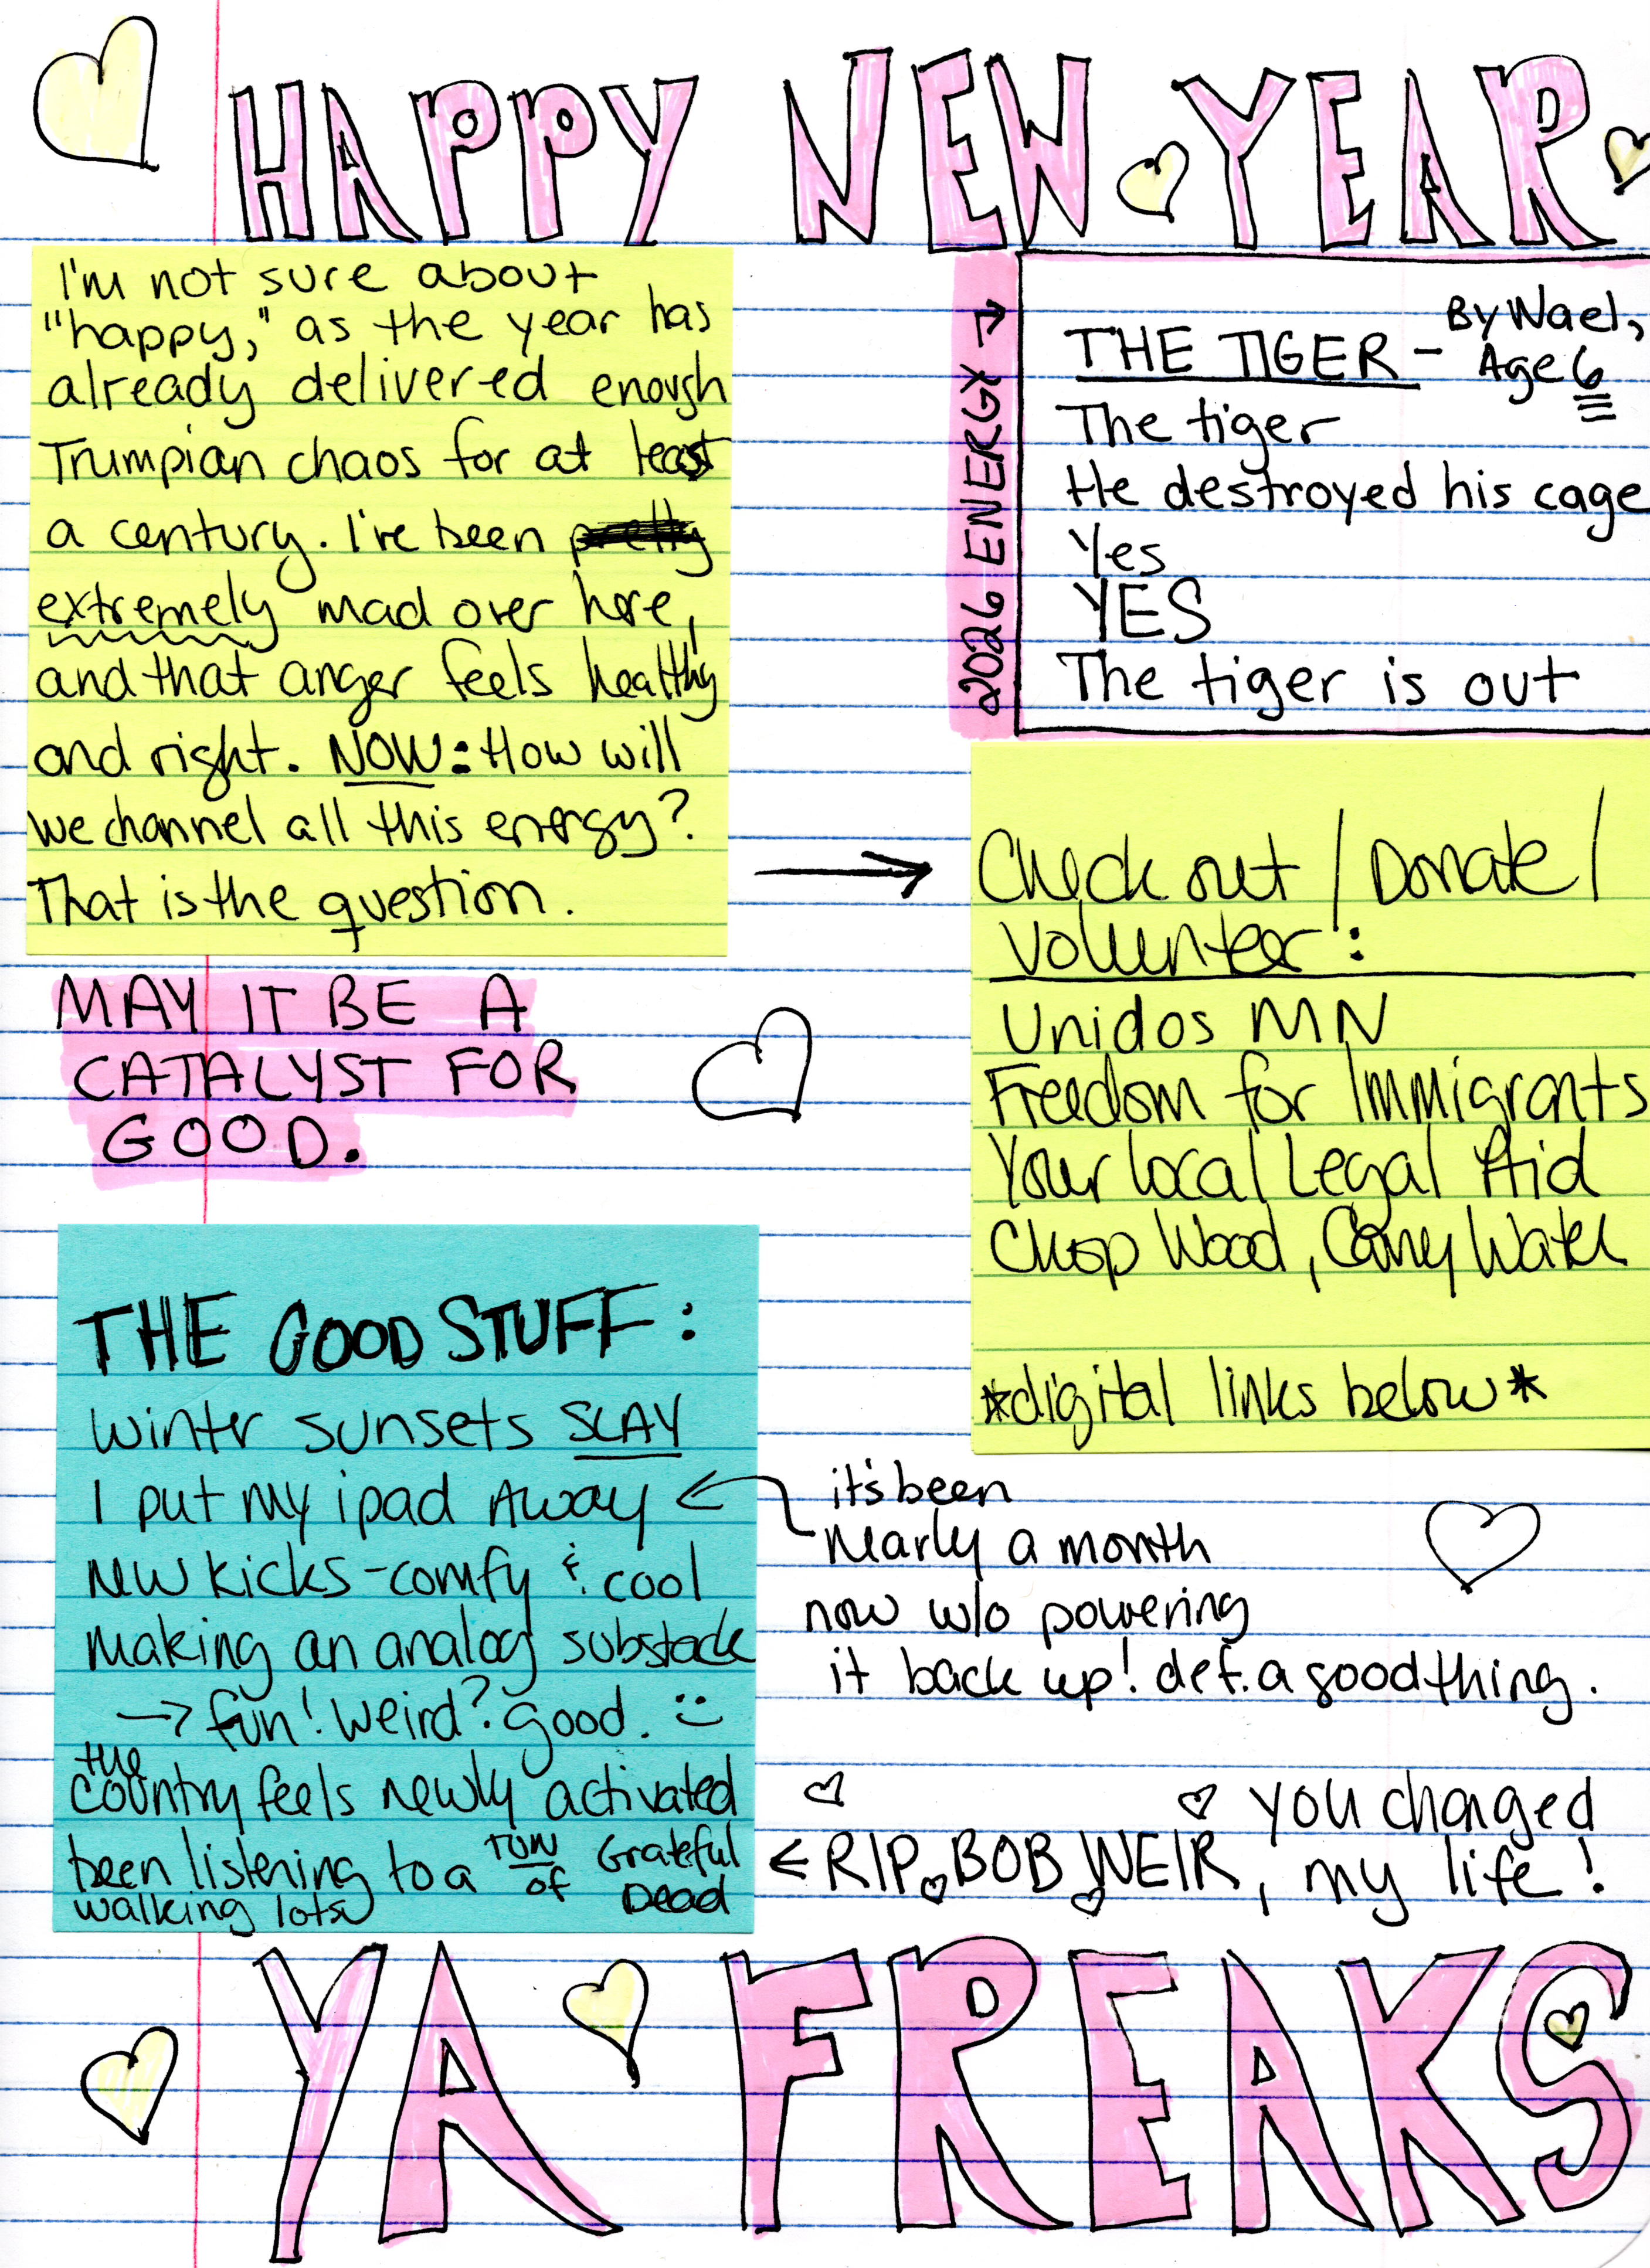 HAPPY NEW YEAR
I'm not sure about
"happy," as the year has
already delivered enough
Trumpian chaos for at least
a century. I've been pretty
extremely mad over here,
and that anger feels healthy
and right. NOW: How will
we channel all this energy?
That is the question.
MAY IT BE A
CATALYST FOR
GOOD.
2026 ENERGY →
THE TIGER - By Wael,
Age 6
The tiger
He destroyed his cage
Yes
YES
The tiger is out
→
Check out / Donate /
Volunteer:
Unidos MN
Freedom for Immigrants
Your Local Legal Aid
Chop Wood, Carry Water
*digital links below*
THE GOOD STUFF:
Winter sunsets SLAY
I put my ipad AWAY
New kicks - comfy & cool
Making an analog substack
→ fun! Weird? Good. :)
the
country feels newly activated
been listening to a TON of Grateful Dead
walking lots
← it's been
nearly a month
now w/o powering
it back up! def. a good thing.
← RIP BOB WEIR, you changed
my life!
YA FREAKS